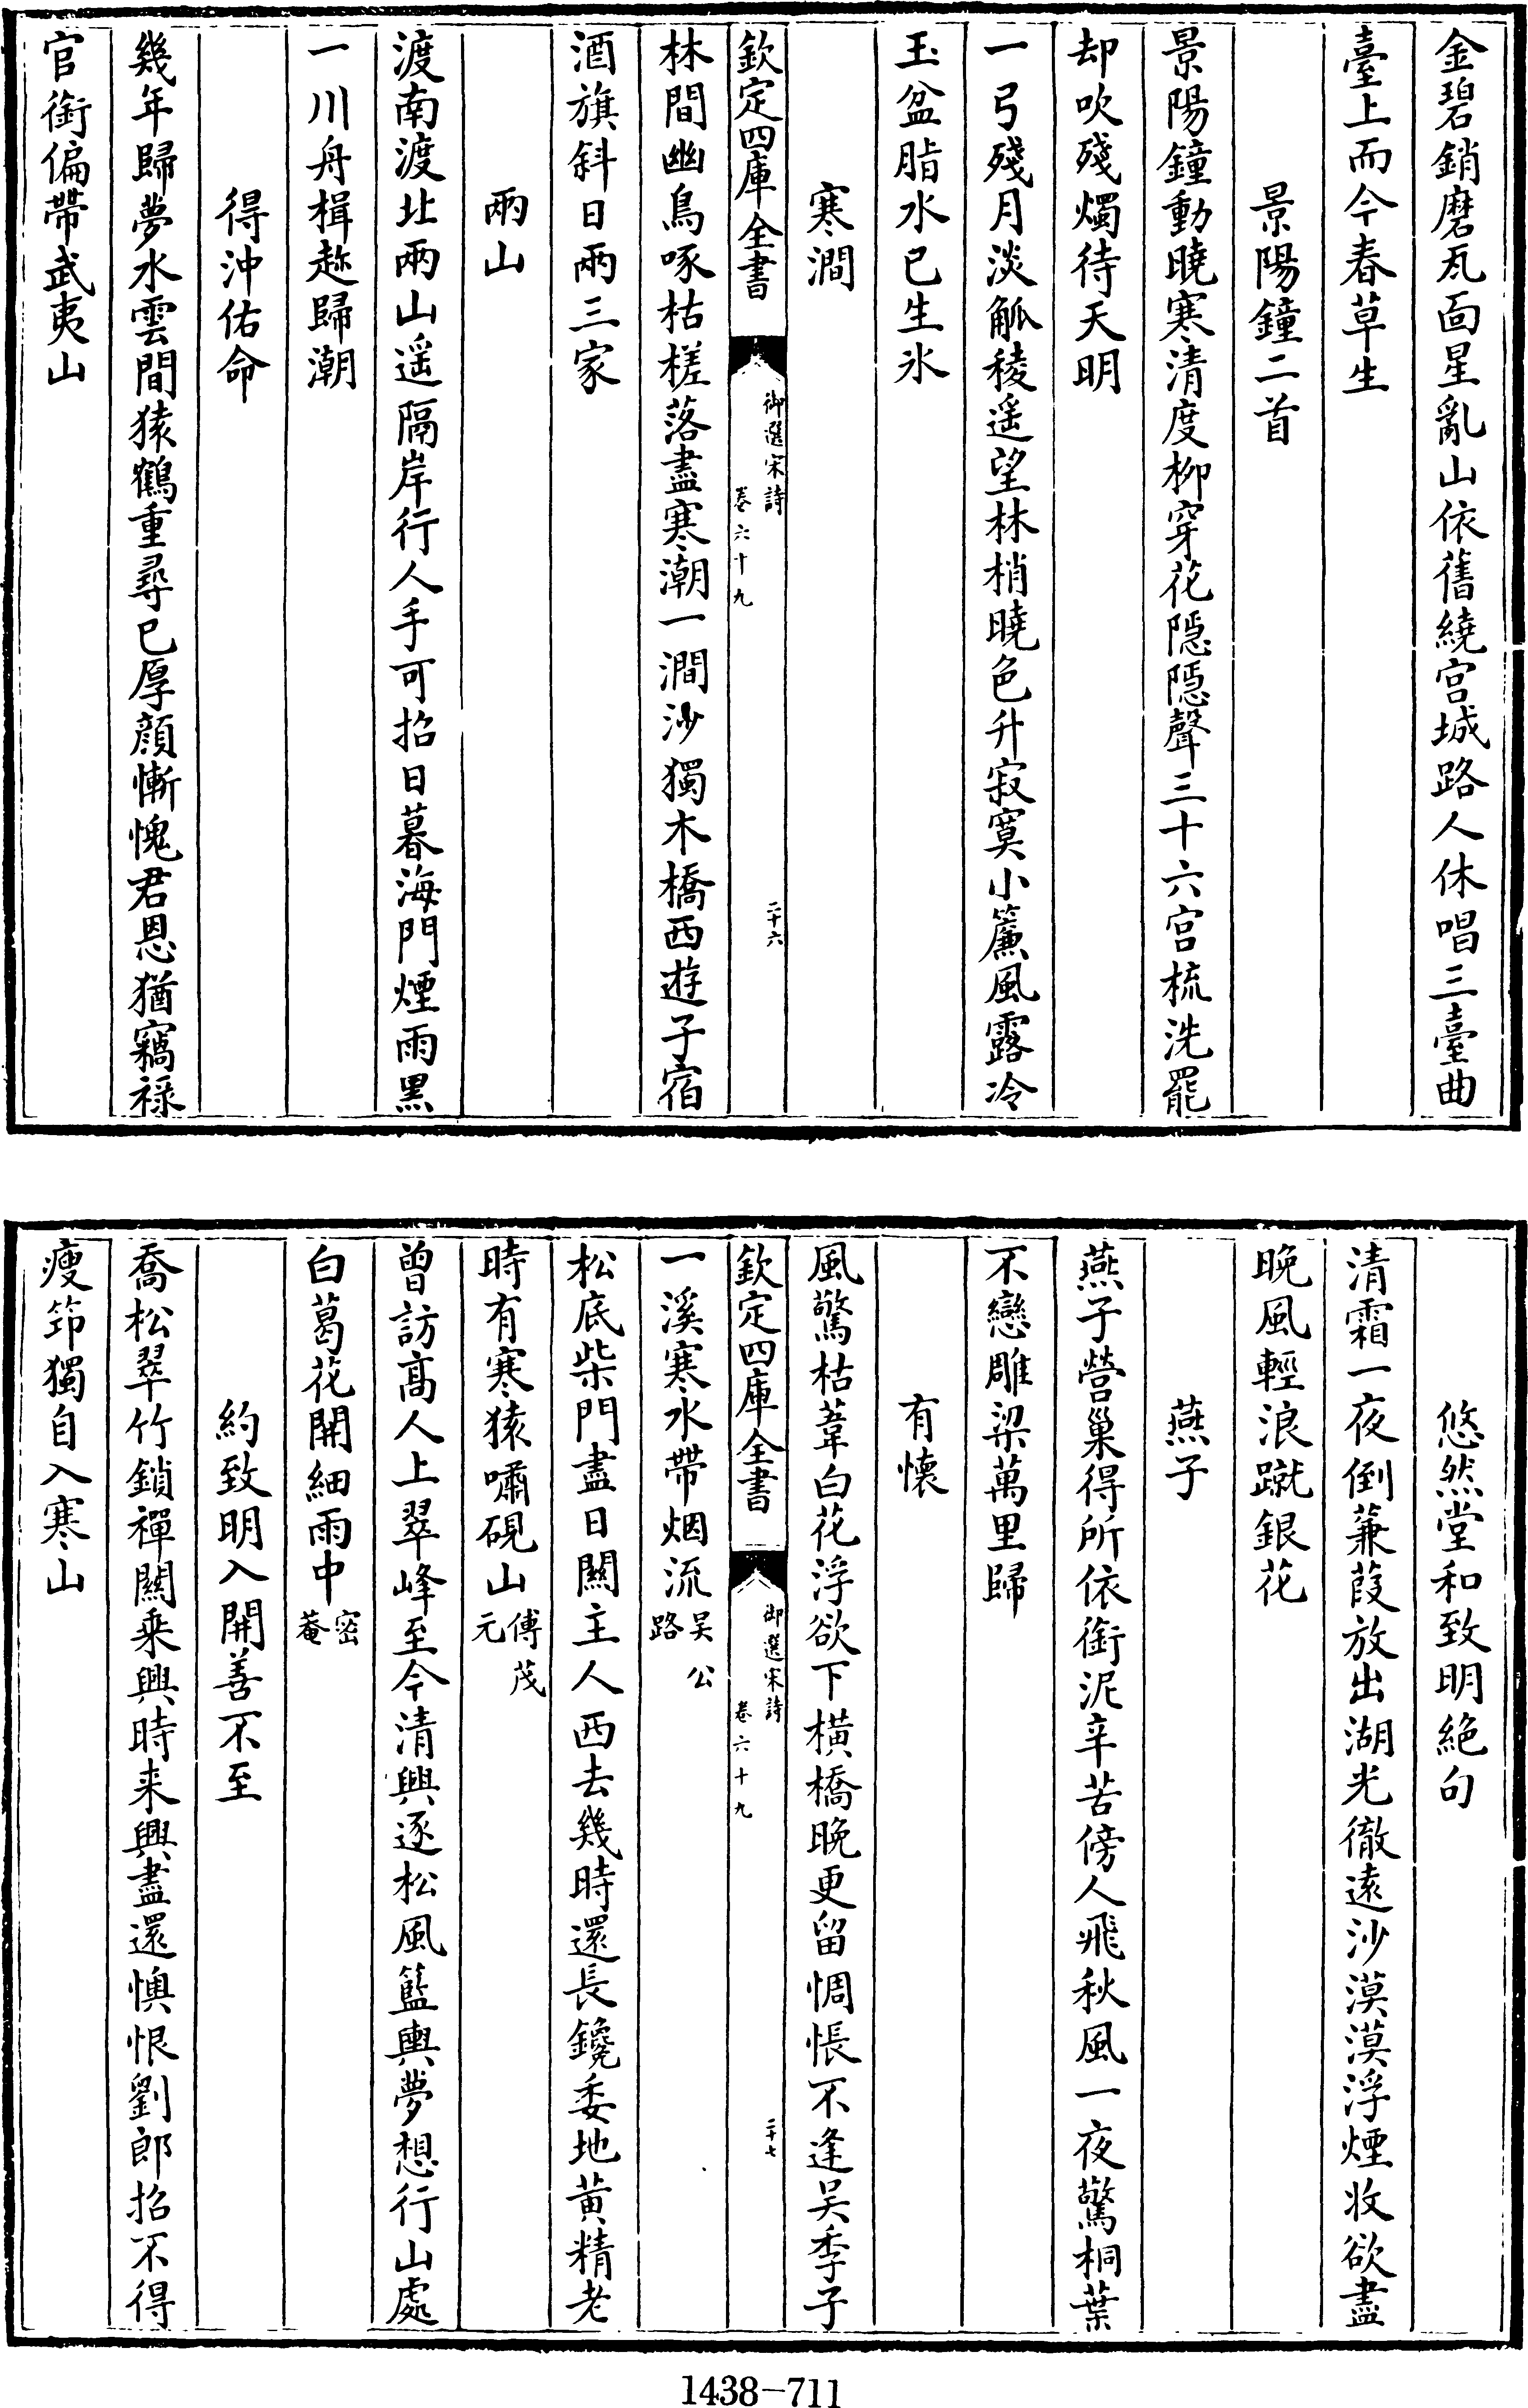 金碧銷磨瓦面星亂山依舊繞宫城路人休唱三臺曲
臺上而今春草生
景陽鐘二首
景陽鐘動曉寒清度柳穿花隠隠聲三十六宫梳洗罷
却吹殘燭待天明
一弓殘月淡觚稜遥望林梢曉色升寂寞小簾風露冷
玉盆脂水已生氷
寒澗
欽定四庫全書
御選宋詩
卷六十九
二十六
林間幽鳥啄枯槎落盡寒潮一澗沙獨木橋西遊子宿
酒旗斜日兩三家
兩山
渡南渡北兩山遥隔岸行人手可招日暮海門煙雨黑
一川舟楫趂歸潮
得沖佑命
幾年歸夢水雲間猿鶴重尋已厚顔慚愧君恩猶竊禄
官銜偏帶武夷山
悠然堂和致明絶句
清霜一夜倒蒹葭放出湖光徹遠沙漠漠浮煙收欲盡
晚風輕浪蹴銀花
燕子
燕子營巢得所依銜泥辛苦傍人飛秋風一夜驚桐葉
不戀雕梁萬里歸
有懷
風驚枯葦白花浮欲下横橋晚更留惆悵不逢吴季子
欽定四庫全書
御選宋詩
卷六十九
二十七
一溪寒水帶烟流吴公路
松底柴門盡日關主人西去幾時還長鑱委地黄精老
時有寒猿嘯硯山傅茂元
曾訪髙人上翠峰至今清興逐松風籃輿夢想行山處
白葛花開細雨中密菴
約致明入開善不至
喬松翠竹鎖禪關乗興時来興盡還懊恨劉郎招不得
瘦笻獨自入寒山
1438-711